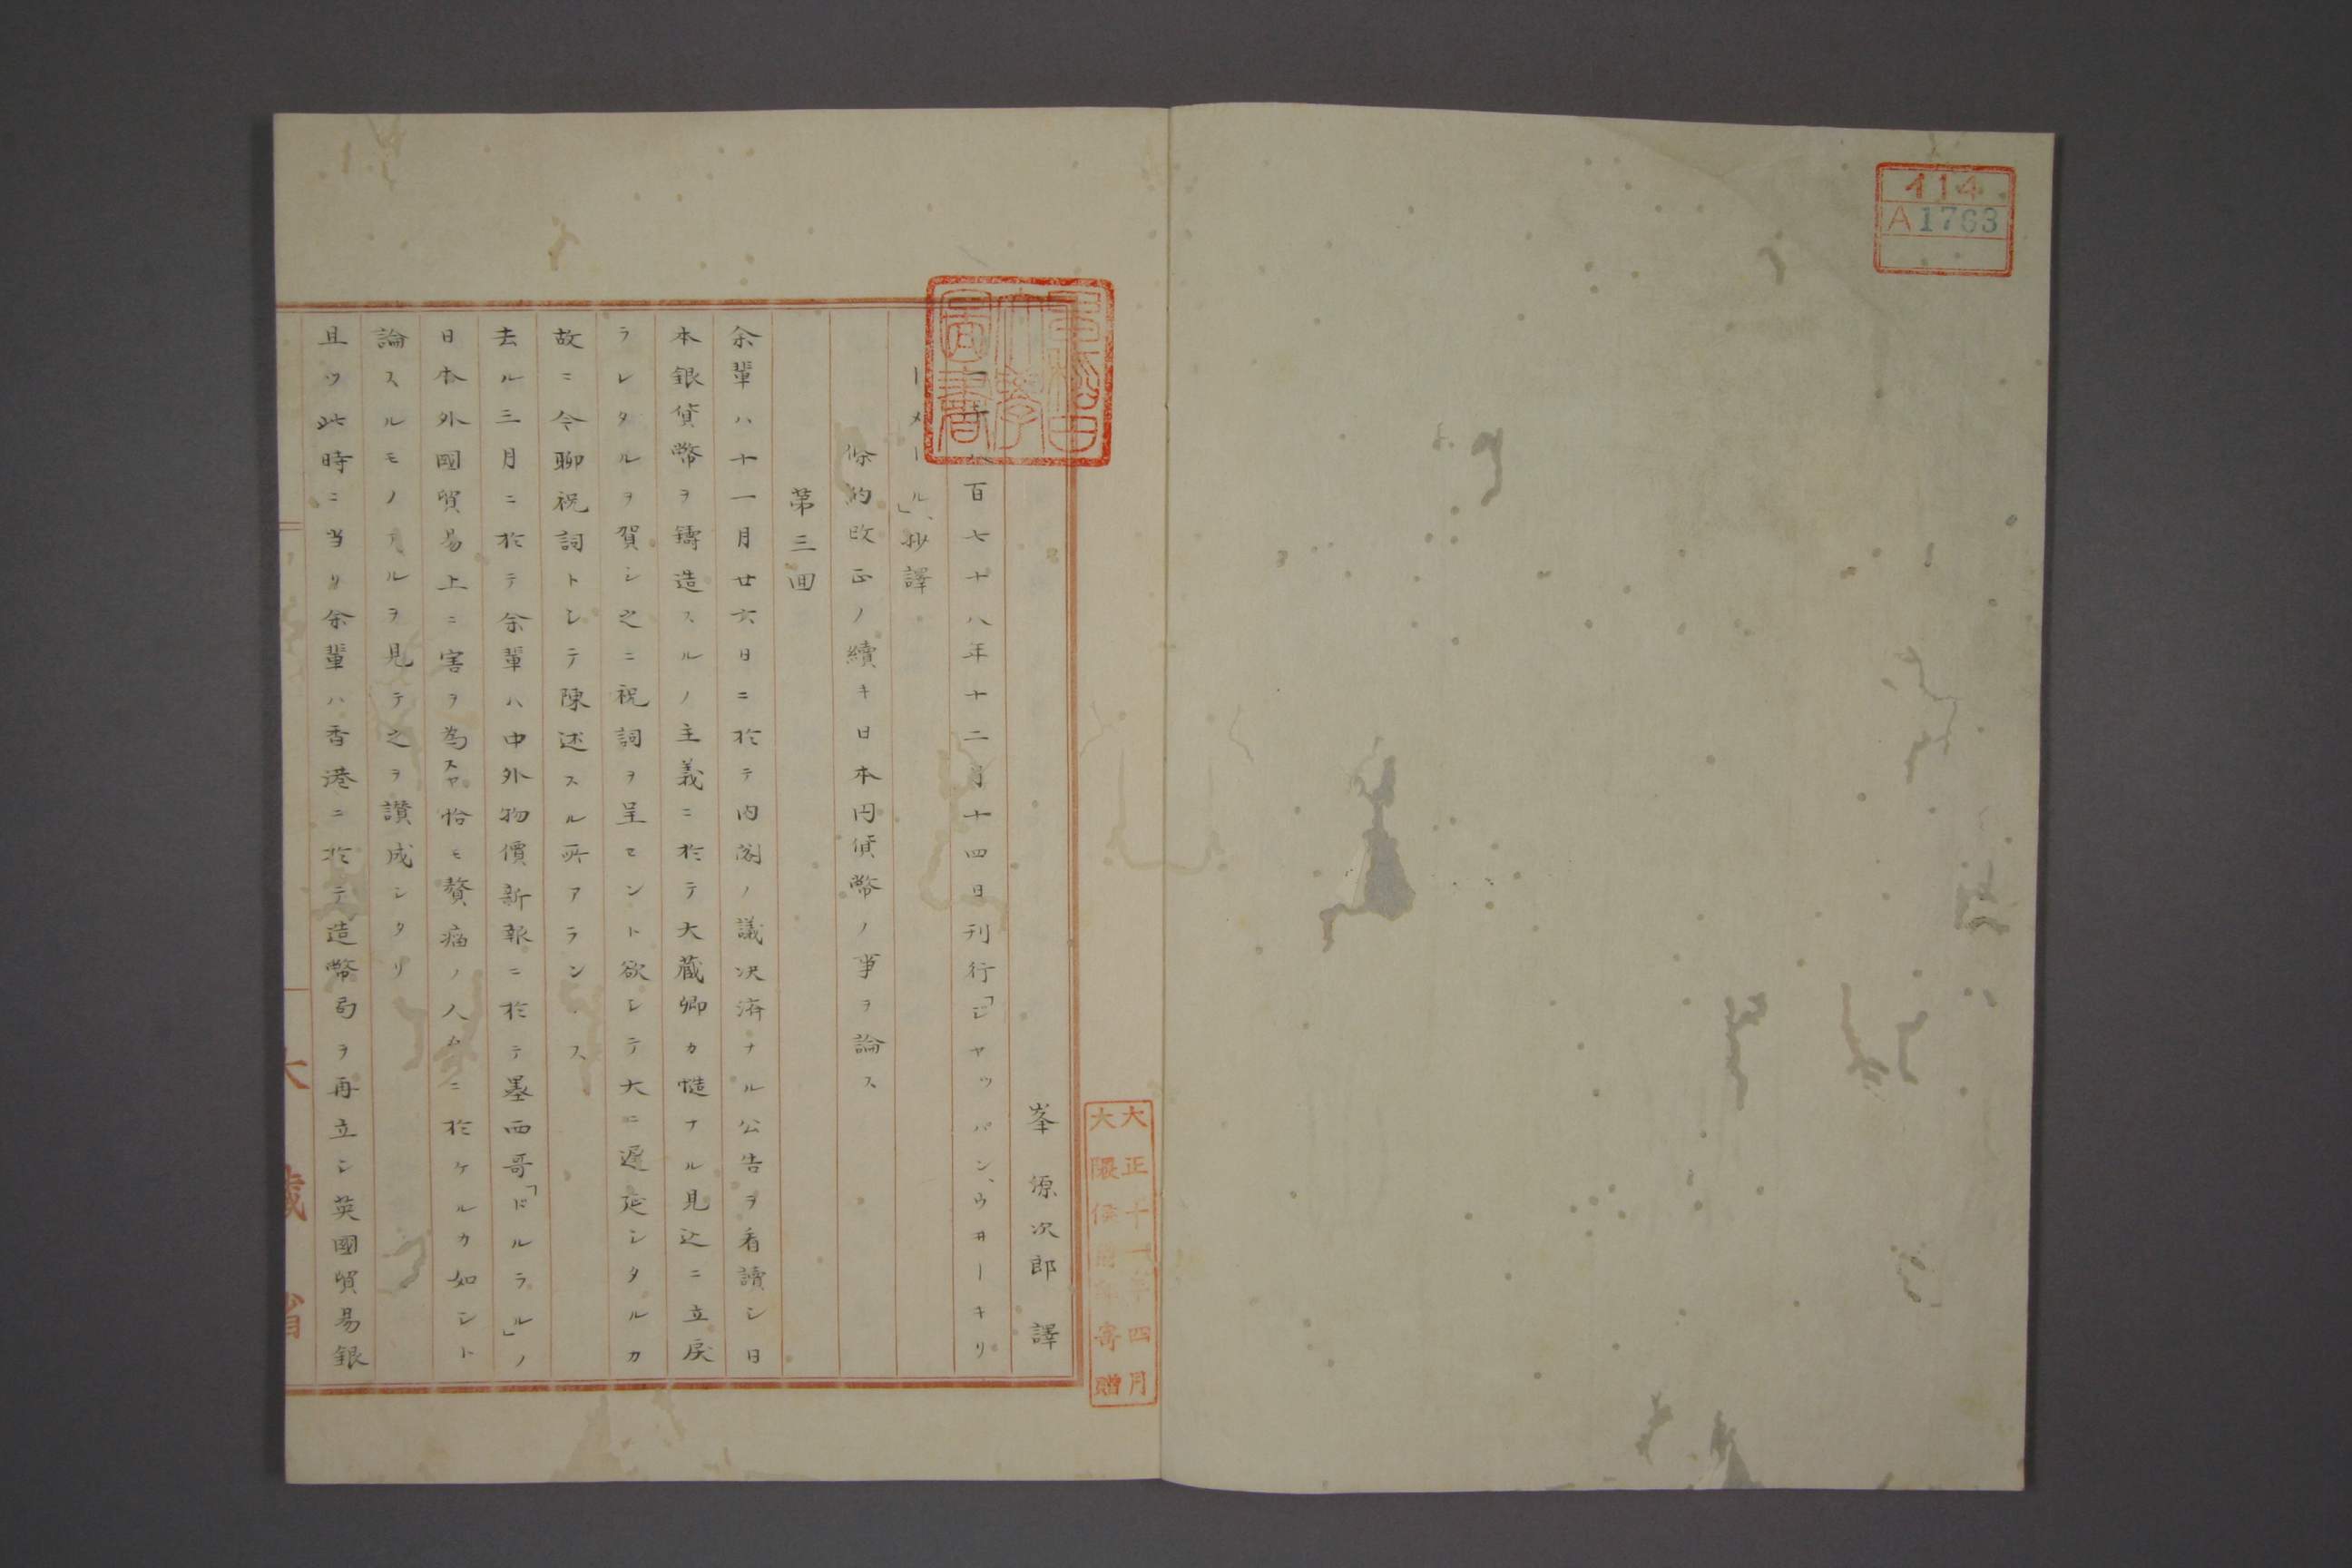 114
A1763
大正十一年四月
大隈侯爵家寄贈
早稲田
大學
圖書
峯源次郎譯
一千八百七十八年十二月十四日刊行「ジヤッパン、ウヰーキリ
ーメール」抄譯
條約改正ノ續キ日本円貨幣ノ事ヲ論ス
第三回
余輩ハ十一月廿六日ニ於テ内閣ノ議决済ナル公告ヲ看讀シ日
本銀貨幣ヲ鑄造スルノ主義ニ於テ大蔵卿カ慥ナル見込ニ立戻
ラレタルヲ賀シ之ニ祝詞ヲ呈セント欲シテ大ニ遲延シタルカ
故ニ今聊祝詞トシテ陳述スル所アラントス
去ル三月ニ於テ余輩ハ中外物價新報ニ於テ墨西哥「ドルラル」ノ
日本外國貿易上ニ害ヲ為スヤ恰モ贅瘤ノ人身ニ於ケルカ如シト
論スルモノアルヲ見テ之ヲ讃成シタリ
且ツ此時ニ当リ余輩ハ香港ニ於テ造幣局ヲ再立シ英國貿易銀
大蔵省